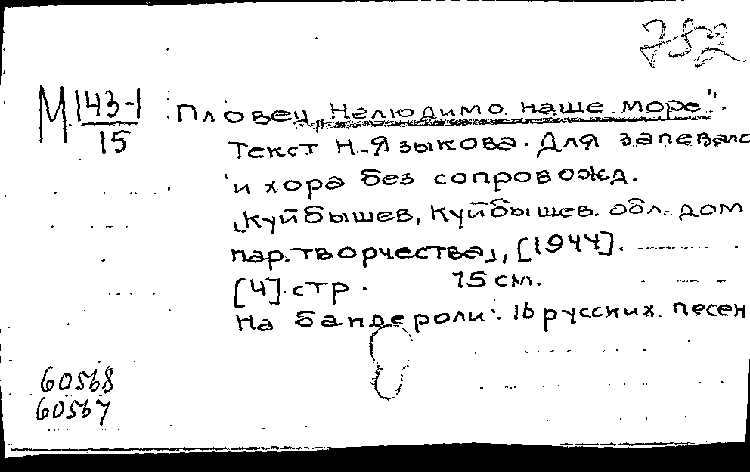 752
М 143-1
15
Пловец „Нелюдимо наше море".
Текст Н. Языкова. Для запевалс
и хора без сопровожд.
[Куйбышев, Куйбышев. обл. дом
нар. творчества], [1944].
[4] стр. 15 см.
На бандероли: 16 русских песен
60568
60567